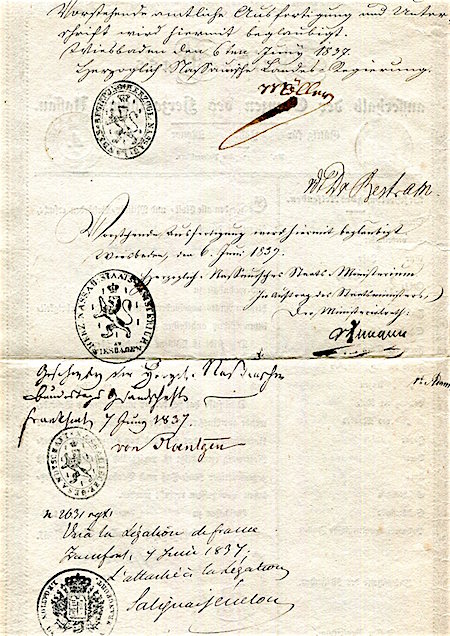 Vorstehende amtliche Ausfertigung und Unter-
schrift wird hiermit beglaubigt.
Wiesbaden den 6ten Juny 1837.
Herzoglich Nassauische Landes-Regierung.
Möller
vdt Bertram.
Vorstehende Ausfertigung wird hiermit beglaubigt
Wiesbaden, den 6. Juni 1837.
Herzoglich Nassauisches Staats-Ministerium
In Auftrag des Staatsministers,
Der Ministerialrath:
HERZ. NASSAU. STAATS-MINISTERIUM
WIESBADEN
Gesehen bey der Herzogl. Nassauischen
Bundestags Gesandtschaft
Frankfurt 7 Juny 1837.
von Roentgen
n 2631 rgt.
Vu à la Légation de france
francfort, 7 Juin 1837.
L'attaché à la Légation
Salignac fenelon